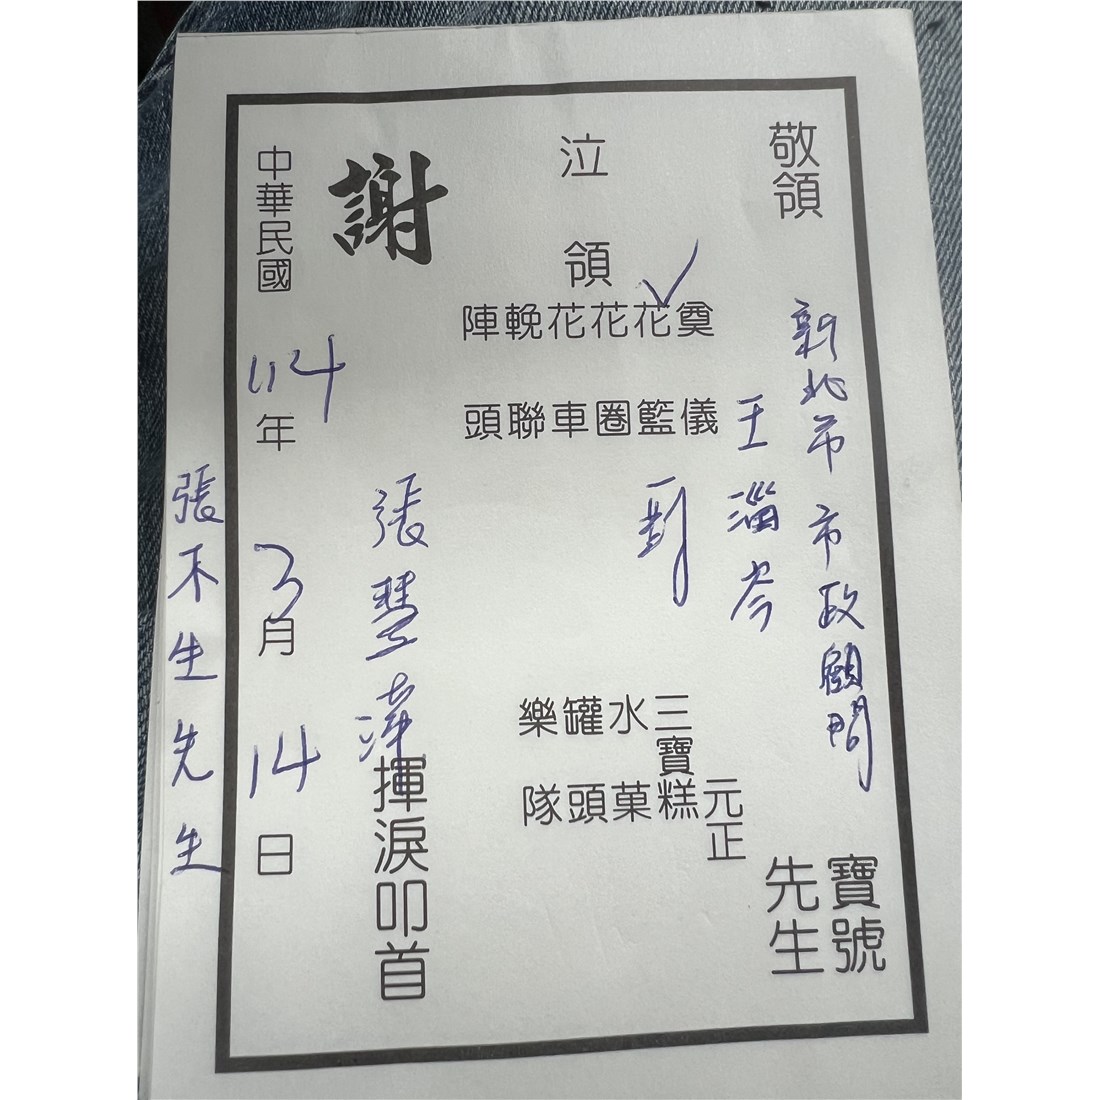 敬領 新北市 市政顧問 寶號
王淄岑 先生
泣領
奠儀 元正
花籃 一對
花圈
花車
輓聯
陣頭
三寶糕
水菓
罐頭
樂隊
謝
張慧 揮淚叩首
中華民國 114 年 3 月 14 日
張木生先生